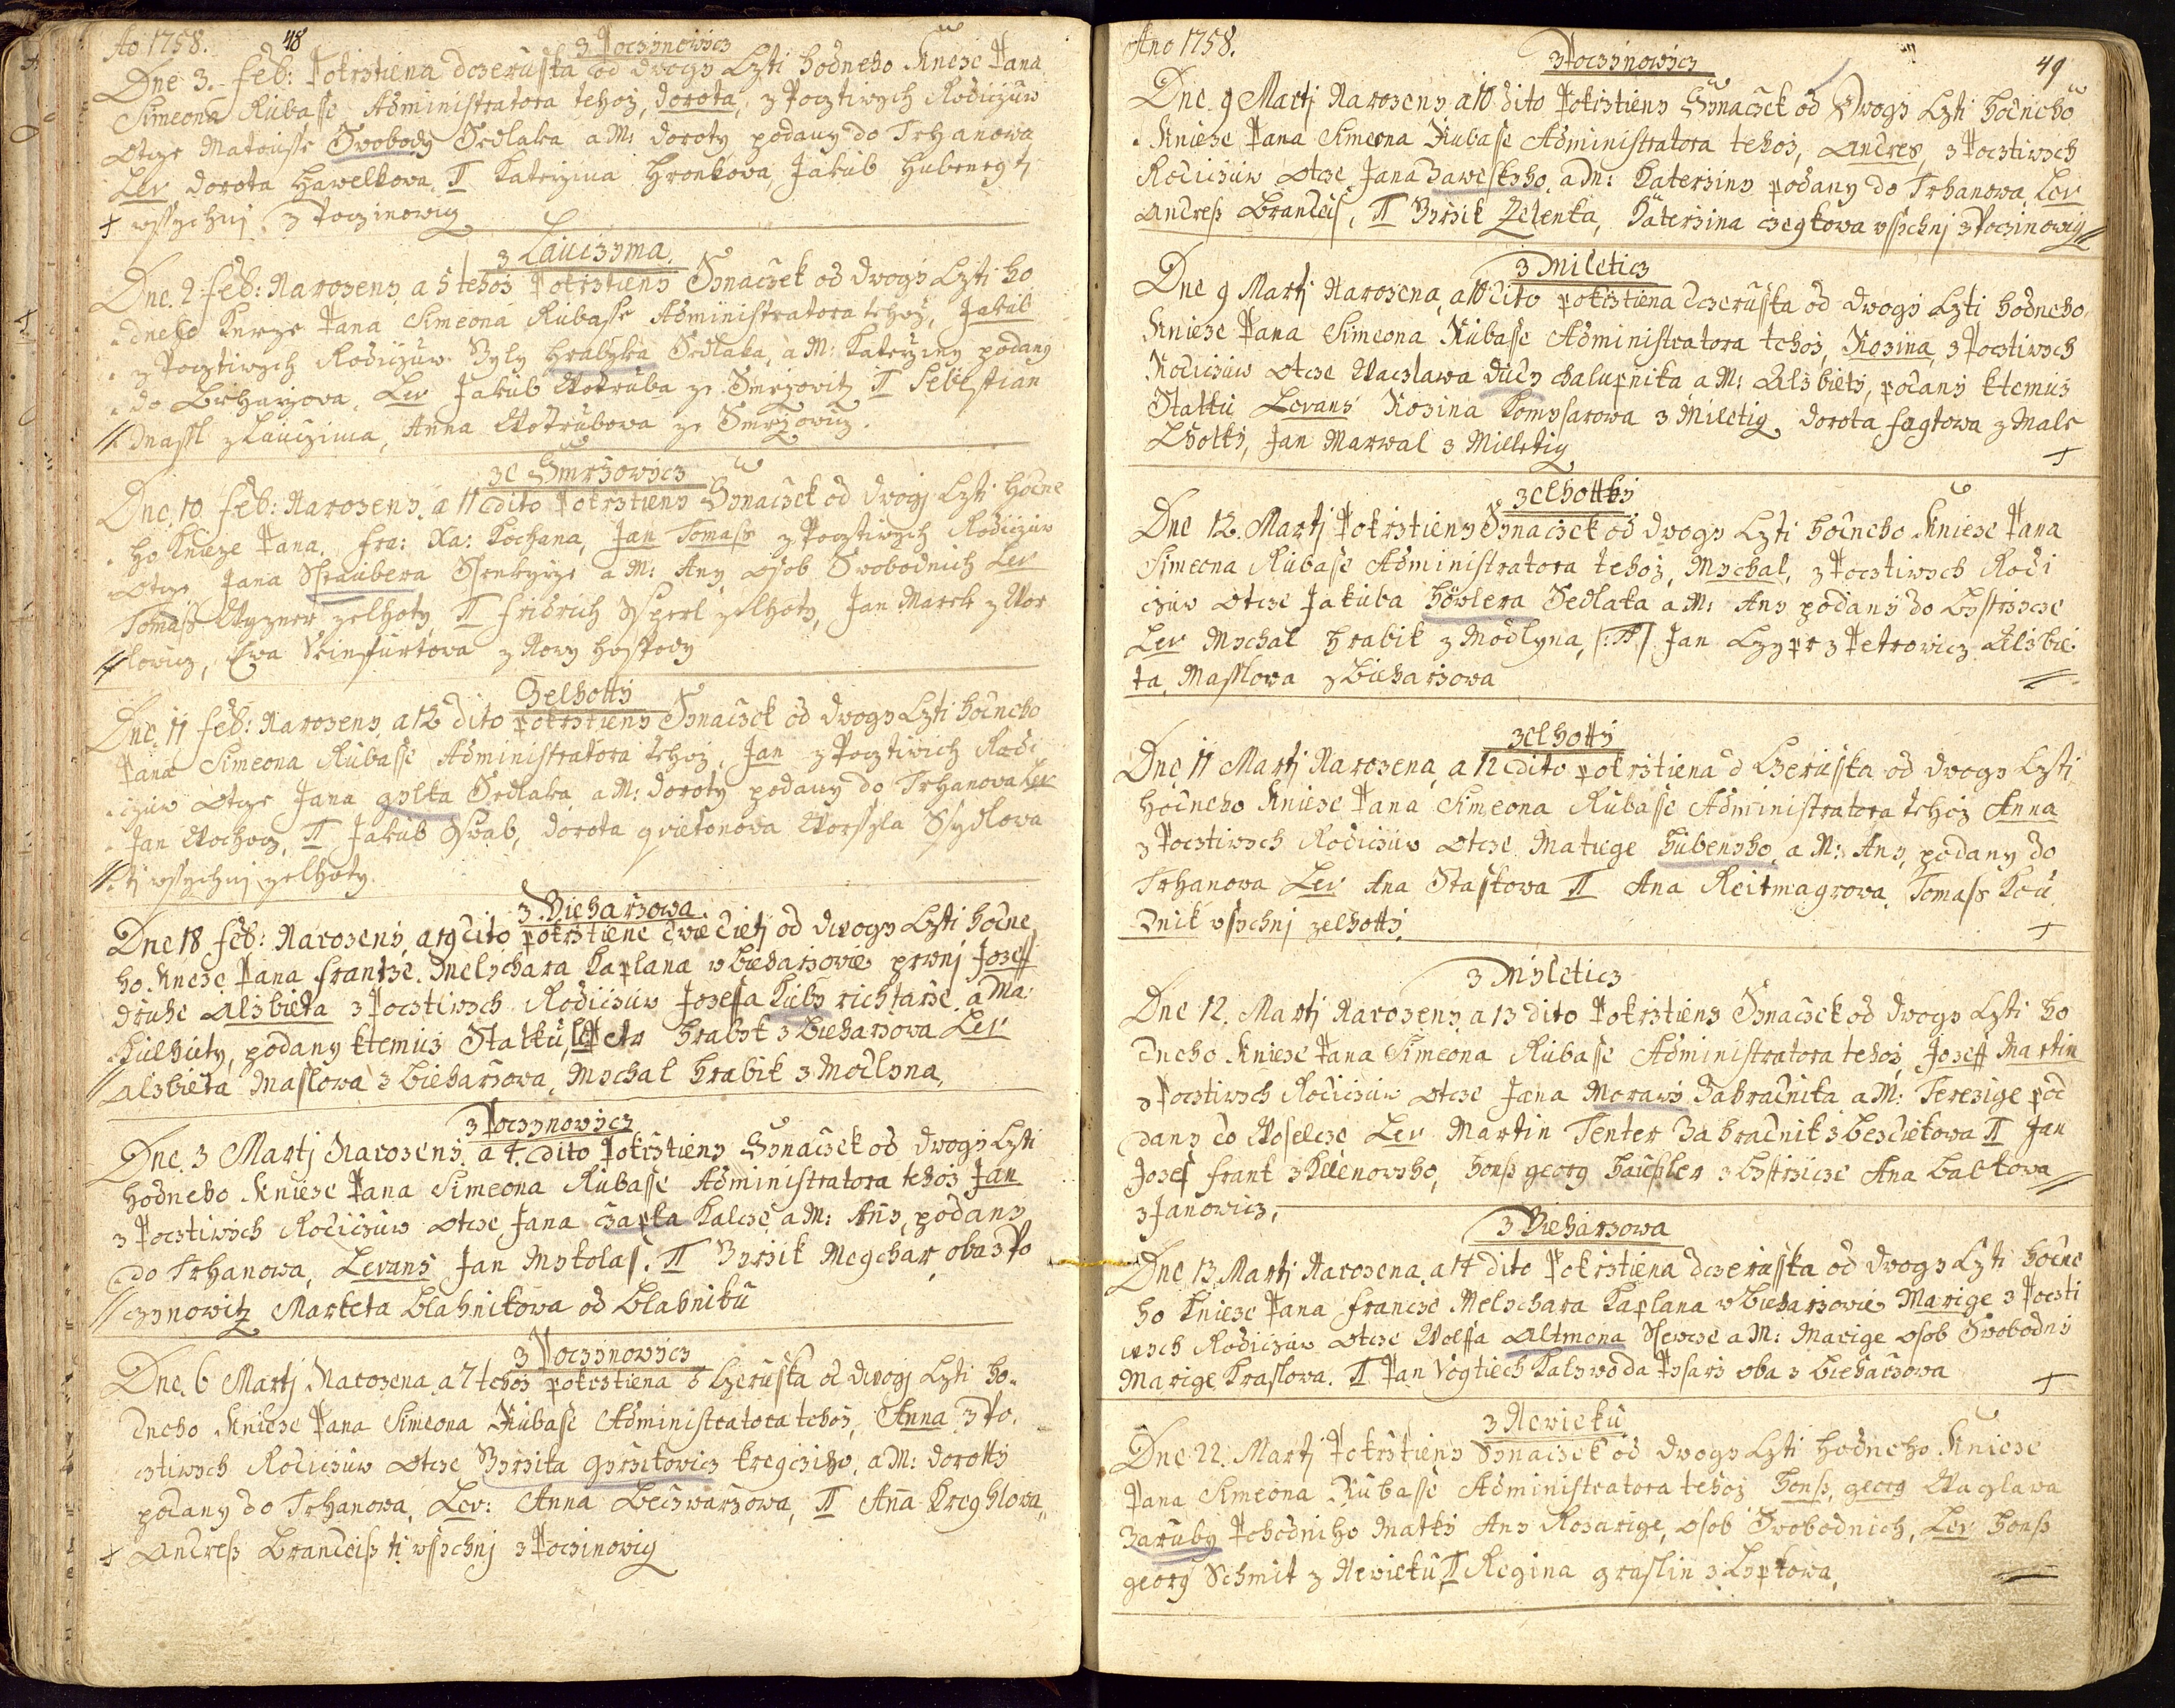 Ao 1758. 48
z Poczinowicz
Dne 3. Feb: Pokrztiena dczeruska od dwogy Czti hodneho Knieze Pana
Simeona Rubasse Administratora tehoz, dorota, z Pocztiwych Rodiczuw
otcze Matousse Swobody Sedlaka a M: doroty podany do Trhanowa
Lev dorota hawelkowa, Π Katerzina Hronkowa, Jakub Hubeney tj
wssychnj z Poczinowicz
z Lauczyma
Dne. 2 Feb: Narozeny a 5 tehoz Pokrztieny Synaczek od dwogy Czti ho
dneho Knieze Pana Simeona Rubasse Administratora tehoz, Jakub
z Pocztiwych Rodiczuw Byly hrabyka Sedlaka, a M: Katerziny podany
do Bieharzova, Lev Jakub Wotruba ze Smrzowitz Π Sebestian
Massl z Lauczima, Anna Wotrubowa ze Smrzowicz.
ze Smrzowicz
Dne 10 Feb: Narozeny a 11 dito Pokrztieny Synaczek od dwogj Czti hodne
ho Knieze Pana, Fra: Xa: Kochana, Jan Tomass z Pocztiwych Rodiczuw
Otcze Jana Straubera Ssenkyrze a M: Any osob Swobodnich Lev
Tomass Wyzner zelhoty Π Fridrich Ssperl zelhoty, Jan Marek z Wor
lowicz, Ewa Steinfurtowa z Nowy hospody
Zelhotty
Dne 11 Feb: Narozeny a 12 dito pokrztieny Synaczek od dwogy Czti hodneho
Pana Simeona Rubasse Administratora tehoz, Jan z Pocztiwich Rodi
czuw otcze Jana gylka Sedlaka a M: doroty podany do Trhanowa Lev
Jan Wochocz, Π Jakub Sswab, dorota gvietonowa Worssyla Ssydlowa
tj wssychnj zelhoty.
z Bieharzowa
Dne 18 Feb: Narozeny, a 19 dito pokrztiene dwie dietj od dwogy Czti hodne
ho Knieze Pana Frantze Melychara Kaplana w Bieharzowie prwnj Joseff
druhe Alzbieta z Pocztiwych Rodiczuw Josefa Kuby richtarze a Ma:
Alzbiety, podany ktemuz Statku, Petr hrabyk z Bieharzowa Lev
Alzbieta Maslowa z Bieharzowa, Mychal hrabik z Modlyna,
z Poczynowicz
Dne 3 Martj Narozeny a 4. dito Pokrztieny Synaczek od dwogy Czti
hodneho Knieze Pana Simeona Rubasse Administratora tehoz Jan
z Pocztiwych Rodiczuw otcze Jana czapka Kalcze a M: Any, podany
do Trhanowa, Levans Jan Mykolas. Π Byrzik Megchar oba z Po
czynowitz Marketa Blahnikowa od Blahniku
z Poczynowicz
Dne 6 Martj Narozena a 7 tehoz pokrztiena d Czeruska od dwogj Czti ho
dneho Knieze Pana Simeona Rubasse Administratora tehoz, Anna z Po
cztiwych Rodiczuw otcze Byrzika gyrzikowicz kregcziho, a M: dorotty
podany do Trhanowa, Lev: Anna Beczwarzowa, Π Anna Kreghlowa
Andress Brandeiss tj wssychnj z Poczinowicz
Ano 1758. 49
z Poczynowicz
Dne 9 Martj Narozeny a 10 dito Pokrztieny Synaczek od Dwogy Czti hodneho
Knieze Pana Simeona Rubasse Administratora tehoz, Andres, z Pocztiwych
Rodiczuw otcze Jana Zaweskyho, a M: Katerziny podany do Trhanowa, Lev
Andress Brandeis, Π Byrzik Zelenka, Katerzina czegkowa wssychnj z Poczinowicz
z Mileticz
Dne 9 Martj Narozena, a 10 dito pokrztiena dczeruska od dwogy Czti hodneho
Knieze Pana Simeona Rubasse Administratora tehoz, Rozina, z Pocztiwych
Rodiczuw otcze Waczlawa dudy chalupnika a M: Alzbiety, podany ktemuz
Statku Levans Rozina Komysarowa z Miletig, dorota fogtowa z Male
Lhotky, Jan Marwal z Milletig
zelhottky
Dne 12. Martj Pokrztieny Synaczek od dwogy Czti hodneho Knieze Pana
Simeona Rubasse Administratora tehoz, Mychal, z Pocztiwych Rodi
czuw otcze Jakuba höwlera Sedlaka a M: Any podany do Bystrzicze
Lev Mychal hrabik z Modlyna, /:Π:/ Jan Czypr z Petrowicz Alzbie
ta Masslowa z Bieharzowa
zelhotty
Dne 11 Martj Narozena a 12 dito pokrztiena d Czeruska od dwogy Czti
hodneho Knieze Pana Simeona Rubasse Administratora tehoz Anna
z Pocztiwych Rodiczuw otcze Matiege hubenyho, a M: Any, podany do
Trhanowa Lev Ana Staskowa Π Ana Reitmagrowa, Tomass Kou
dnik wssychnj zelhotty.
z Myleticz
Dne 12. Martj Narozeny a 13 dito Pokrztieny Synaczek od dwogy Czti ho
dneho Knieze Pana Simeona Rubasse Administratora tehoz, Joseff Martin
z Pocztiwych Rodiczuw otcze Jana Morawy Zahradnika a M: Terezige pod
dany do Woselcze Lev Martin Tenter Zahradnik z Besdiekowa Π Jan
Josef Frank z Klenowyho, honss georg haussler z Bystrzicze Ana Balkowa
z Janowicz,
z Bieharzowa
Dne 13 Martj Narozena, a 14 dito Pokrztiena dczeruska od dwogy Czti hodne
ho Knieze Pana Francze Melychara Kaplana w Bieharzowie Marige z Poczti
wych Rodiczuw otcze Wolffa Altmona Ssewcze a M: Marige osob Swobodny
Marige Kraslowa. Π Pan Vogtiech Kalywoda Pysarz oba z Bieharzowa
z Newieku
Dne 22. Martj Pokrztieny Synaczek od dwogy Czti hodneho Knieze
Pana Simeona Rubasse Administratora tehoz honss, georg Waczlawa
Zaruby Pohodniho Matky Any Rozarige, osob Swobodnich, Lev honss
georg Schmit z Newieku, Π Regina graslin z Lyptowa,